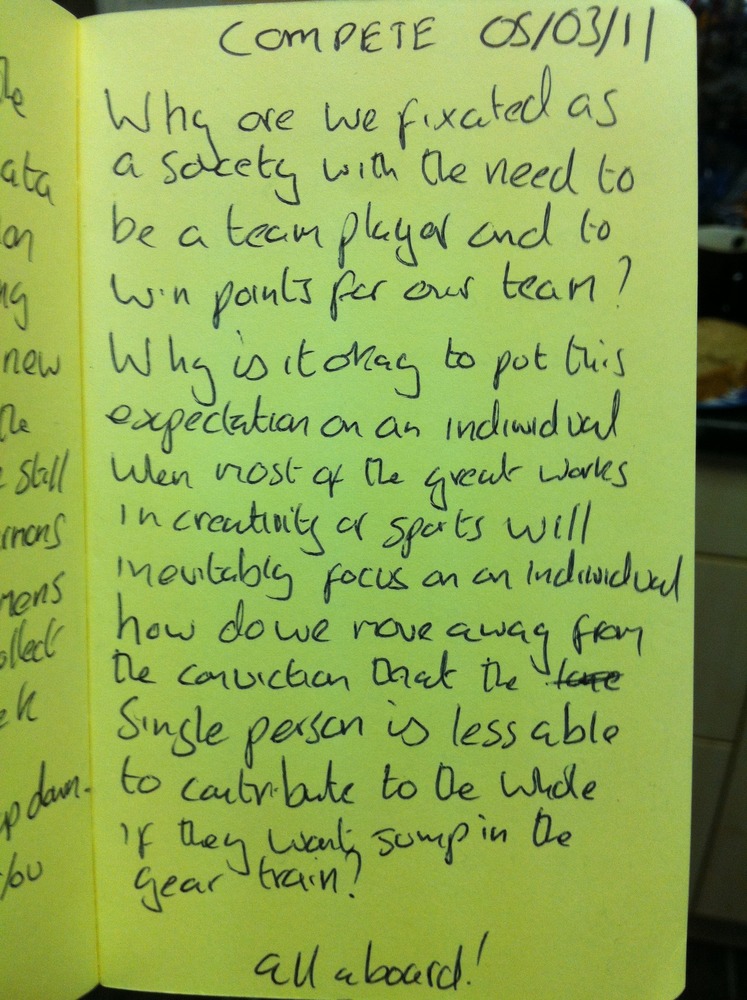 COMPETE 05/03/11
Why are we fixated as
a society with the need to
be a team player and to
win points for our team?
Why is it okay to put this
expectation on an individual
when most of the great works
in creativity or sports will
inevitably focus on an individual
how do we move away from
the conviction that the
Single person is less able
to contribute to the whole
if they wont jump in the
gear train?
all aboard!
he
ata
on
ng
new
the
still
mons
mens
ollect
ek
up down.
you